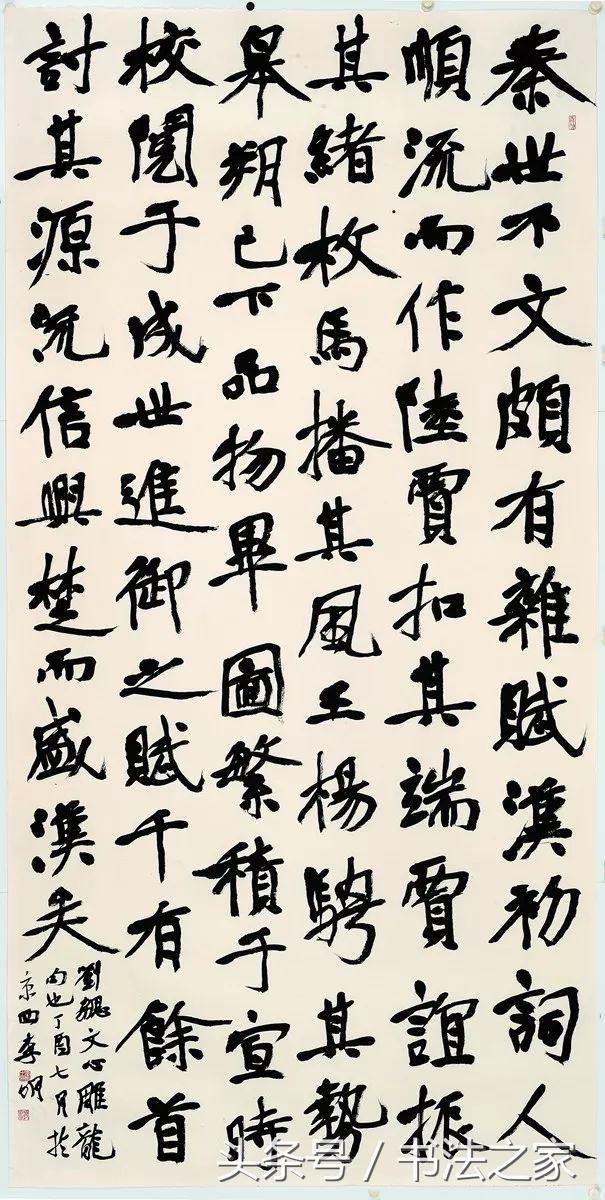 秦世不文頗有雜賦漢初詞人
順流而作陸賈扣其端賈誼振
其緒枚馬播其風王楊騁其勢
皋朔已下品物畢圖繁積于宣時
校閱于成世進御之賦千有餘首
討其源流信興楚而盛漢矣
劉勰文心雕龍
句也丁酉七月於
京西李明
头条号 / 书法之家